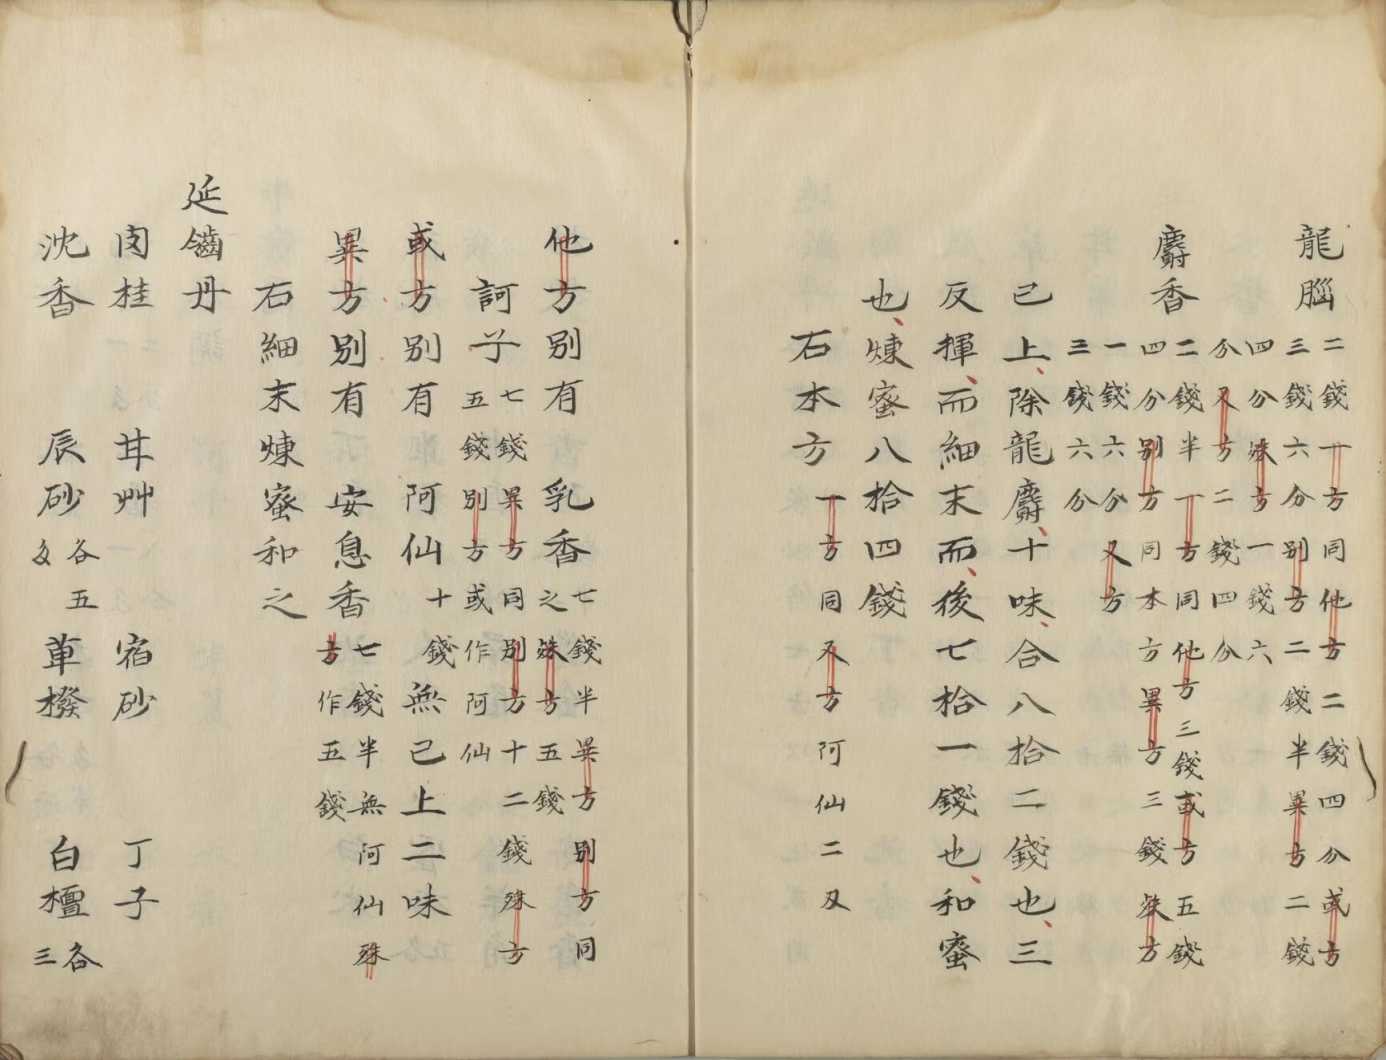 龍腦
二錢一方同他方二錢四分或方
三錢六分別方二錢半異方二錢
四分殊方一錢六
分又方二錢四分
麝香
二錢半一方同他方三錢或方五錢
四分別方同本方異方三錢殊方
一錢六分又方
三錢六分
已上除龍麝十味合八拾二錢也三
反揮而細末而後七拾一錢也和蜜
也煉蜜八拾四錢
石本方 一方同又方阿仙二匁
他方別有乳香 七錢半異方別方同
之殊方五錢
訶子 七錢異方同別方十二錢殊方
五錢別方或作阿仙
或方別有阿仙十錢無已上二味
異方別有安息香 七錢半無阿仙殊
方作五錢
石細末煉蜜和之
延齡丹
肉桂 甘艸 宿砂 丁子
沈香 辰砂各五匁 蓽撥 白檀各三